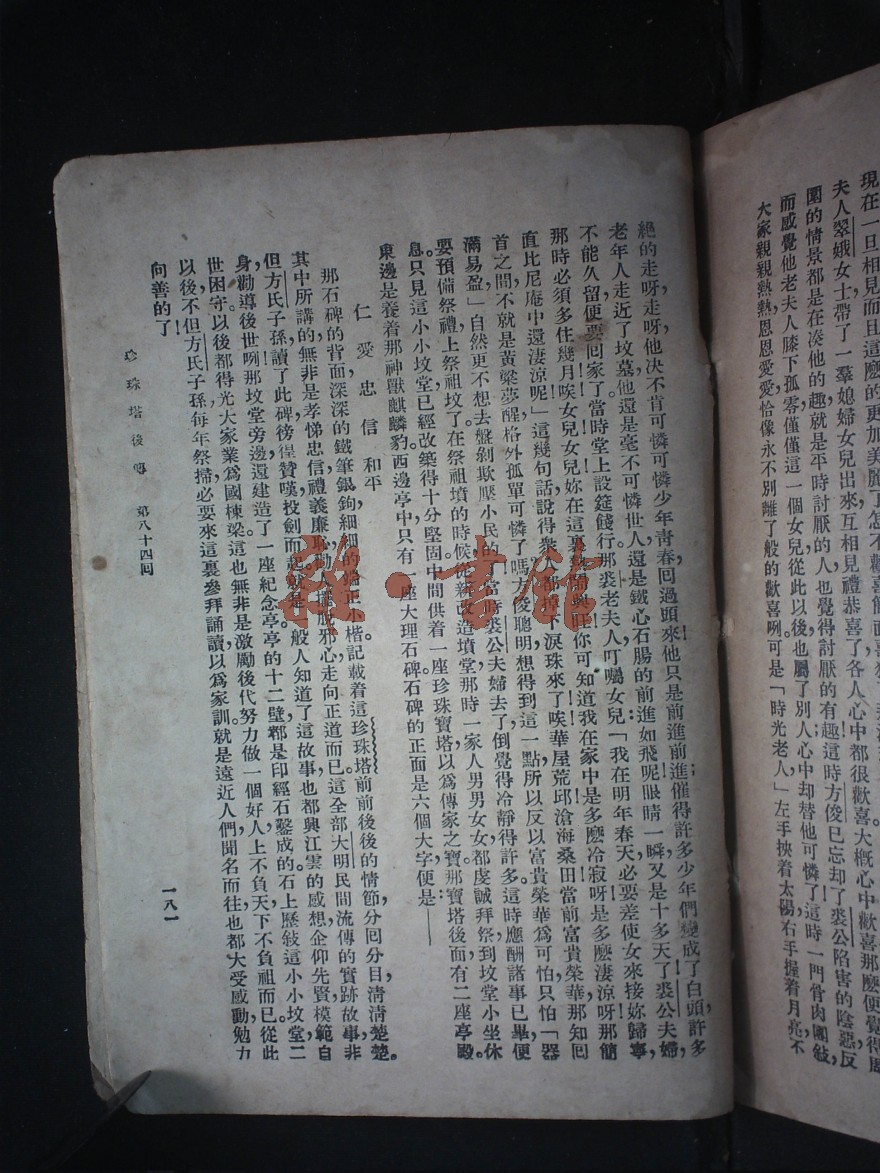 現在一旦相見而且這麽的更加美麗了怎不歡喜
夫人翠娥女士帶了一羣媳婦女兒出來互相見禮恭喜了各人心中都很歡喜大槪心中歡喜那麽便覺得周
圍的情景都是在湊他的趣就是平時討厭的人也覺得討厭的有趣這時方俊已忘却了裘公陷害的陰惡反
而感覺他老夫人膝下孤零僅僅這一個女兒從此以後也屬了別人心中却替他可憐了這時一門骨肉團敍,
大家親親熱熱恩恩愛愛恰像永不別離了般的歡喜咧可是「時光老人」左手挾着太陽右手握着月亮,不
絕的走呀走呀他決不肯可憐可憐少年靑春回過頭來他只是前進前進;催得許多少年們變成了白頭,許多
老年人走近了墳墓他還是毫不可憐世人還是鐵心石腸的前進如飛呢眼睛一瞬又是十多天了裘公夫婦,
不能久留便要回家了當時堂上設筵餞行那裘老夫人叮囑女兒「我在明年春天必要差使女來接妳歸寧,
那時必須多住幾月唉女兒女兒妳在這裏興旺你可知道我在家中是多麽冷寂呀是多麽淒涼呀那簡
直比尼庵中還淒涼呢」這幾句話說得衆人都掉下淚珠來了唉華屋荒邱滄海桑田當前富貴榮華那知回
首之間不就是黃粱夢醒格外孤單可憐了嗎方俊聰明想得到這一點所以反以富貴榮華爲可怕只怕「器
滿易盈」自然更不想去盤剝欺壓小民的了當時裘公夫婦去了倒覺得冷靜得許多這時應酬諸事已畢便
要預備祭禮上祭祖墳了在祭祖墳的時候從新改造墳堂那時一家人男男女女都虔誠拜祭到墳堂小坐休
息。只見這小小墳堂已經改築得十分堅固中間供着一座珍珠寶塔以爲傳家之寶那寶塔後面有二座亭殿。
東邊是養着那神獸麒麟豹西邊亭中只有一座大理石碑石碑的正面是六個大字便是——
仁愛忠信和平
那石碑的背面深深的鐵筆銀鉤細細的正小楷。記載着這珍珠塔前前後後的情節,分回分目,淸淸楚楚。
其中所講的無非是孝悌忠信禮義廉恥勸人擺脫邪心走向正道而已。這全部大明民間流傳的實跡故事,非
但方氏子孫讀了此碑徬徨贊嘆投劍而起就是一般人知道了這故事也都興江雲的感想企仰先賢模範自
身,勸導後世咧!那墳堂旁邊還建造了一座紀念亭亭的十二壁都是印經石鑿成的石上歷敍這小小墳堂二
世困守。以後都得光大家業爲國棟梁。這也無非是激勵後代努力做一個好人上不負天下不負祖而已。從此
以後,不但方氏子孫每年祭掃必要來這裏參拜誦讀以爲家訓。就是遠近人們聞名而往,也都大受感動,勉力
向善的了!
珍珠塔後傳　第八十四回
一八一
雜·書館